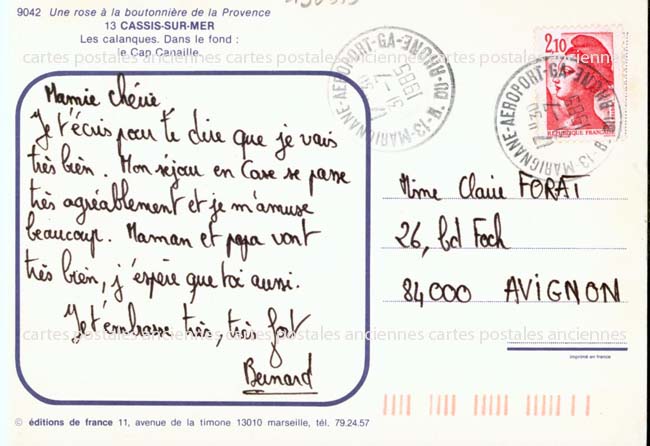 9042 Une rose à la boutonnière de la Provence
13 CASSIS-SUR-MER
Les calanques. Dans le fond :
le Cap Canaille.
Mamie Chérie,
Je t'écris pour te dire que je vais
très bien. Mon séjour en Corse se passe
très agréablement et je m'amuse
beaucoup. Maman et papa vont
très bien, j'espère que toi aussi.
Je t'embrasse très, très fort
Bernard
2,10
REPUBLIQUE FRANCAISE
13-MARIGNANE-AEROPORT-GA-BDU-RHONE
17 H 30
31-7
1985
13-MARIGNANE-AEROPORT-GA-BDU-RHONE
17 H 30
1985
Mme Claire FORAT
26, bd Foch
84000 AVIGNON
cartes postales anciennes cartes postales anciennes cartes postales anciennes
cartes postales anciennes cartes postales anciennes cartes postales anciennes
cartes postales anciennes cartes postales anciennes cartes postales anciennes
imprimé en france
© éditions de france 11, avenue de la timone 13010 marseille, tél. 79.24.57